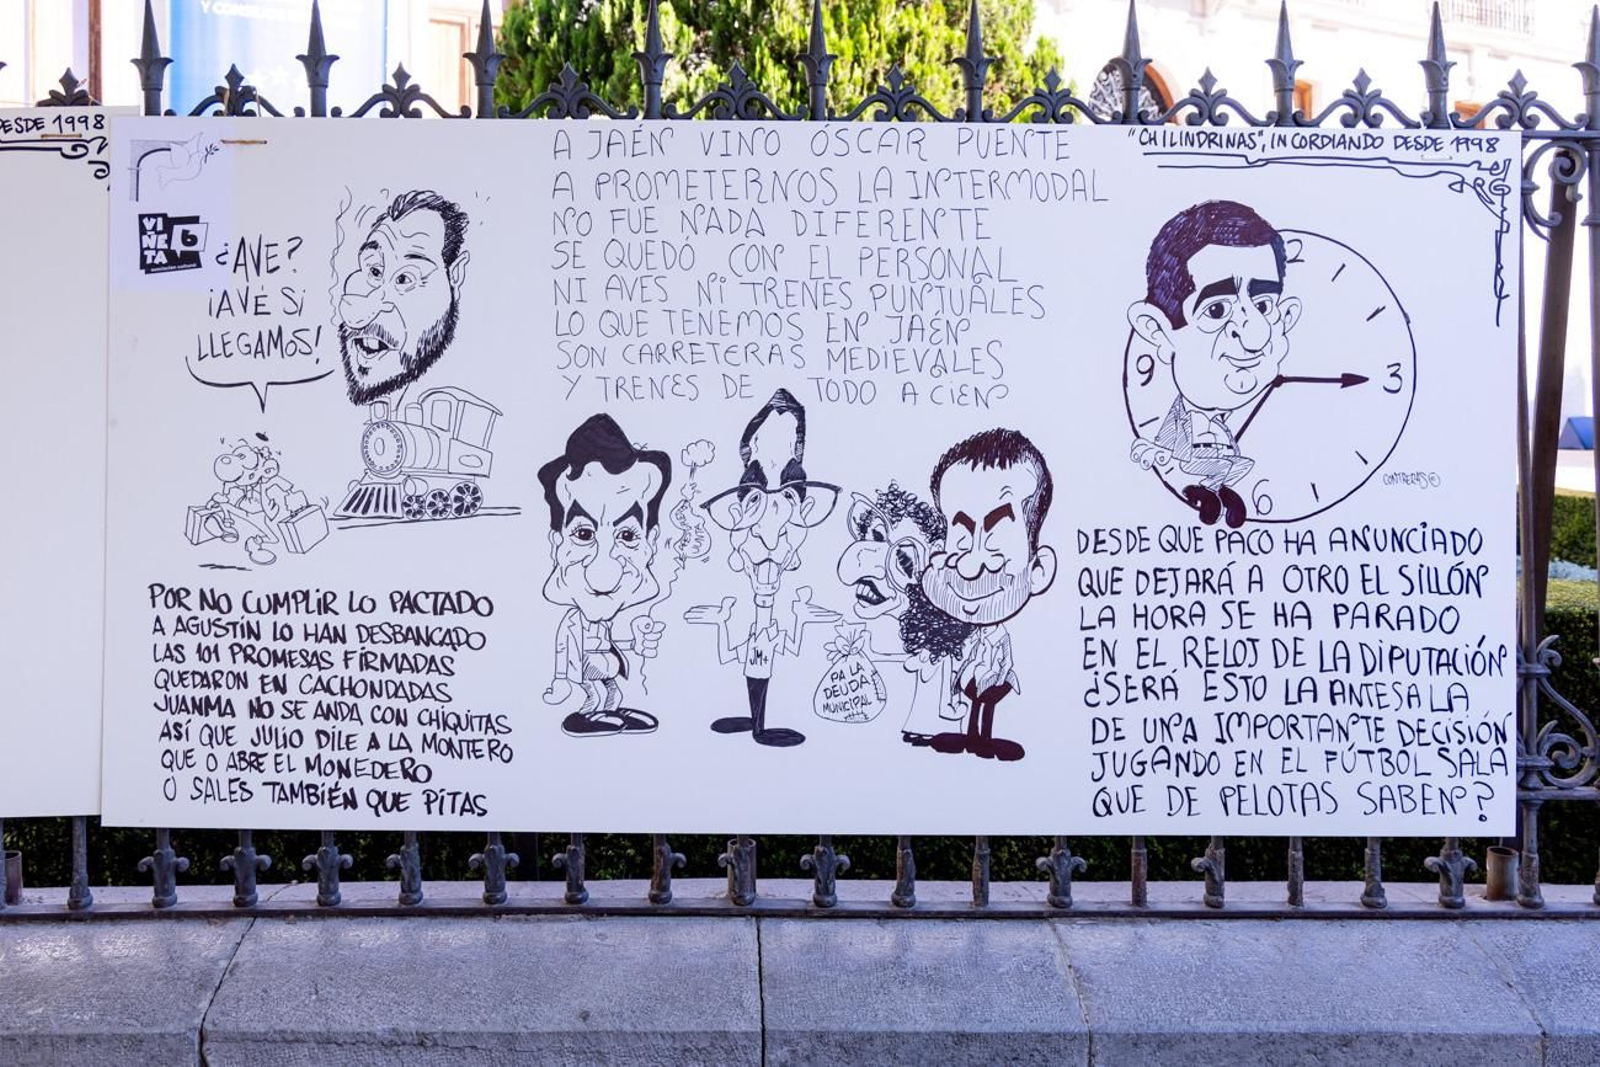 Y CONS
DESDE 1998
VI
ÑE
TA
6
¿AVE?
¡AVÉ SI
LLEGAMOS!
A JAÉN VINO ÓSCAR PUENTE
A PROMETERNOS LA INTERMODAL
NO FUE NADA DIFERENTE
SE QUEDÓ CON EL PERSONAL
NI AVES NI TRENES PUNTUALES
LO QUE TENEMOS EN JAÉN
SON CARRETERAS MEDIEVALES
Y TRENES DE TODO A CIEN
JM+
PA LA
DEUDA
MUNICIPAL
POR NO CUMPLIR LO PACTADO
A AGUSTÍN LO HAN DESBANCADO
LAS 101 PROMESAS FIRMADAS
QUEDARON EN CACHONDADAS
JUANMA NO SE ANDA CON CHIQUITAS
ASÍ QUE JULIO DILE A LA MONTERO
QUE O ABRE EL MONEDERO
O SALES TAMBIÉN QUE PITAS
"CHILINDRINAS", INCORDIANDO DESDE 1998
2
9
3
6
CONTRERAS ©
DESDE QUE PACO HA ANUNCIADO
QUE DEJARÁ A OTRO EL SILLÓN
LA HORA SE HA PARADO
EN EL RELOJ DE LA DIPUTACIÓN
¿SERÁ ESTO LA ANTESALA
DE UNA IMPORTANTE DECISIÓN
JUGANDO EN EL FÚTBOL SALA
QUE DE PELOTAS SABEN?